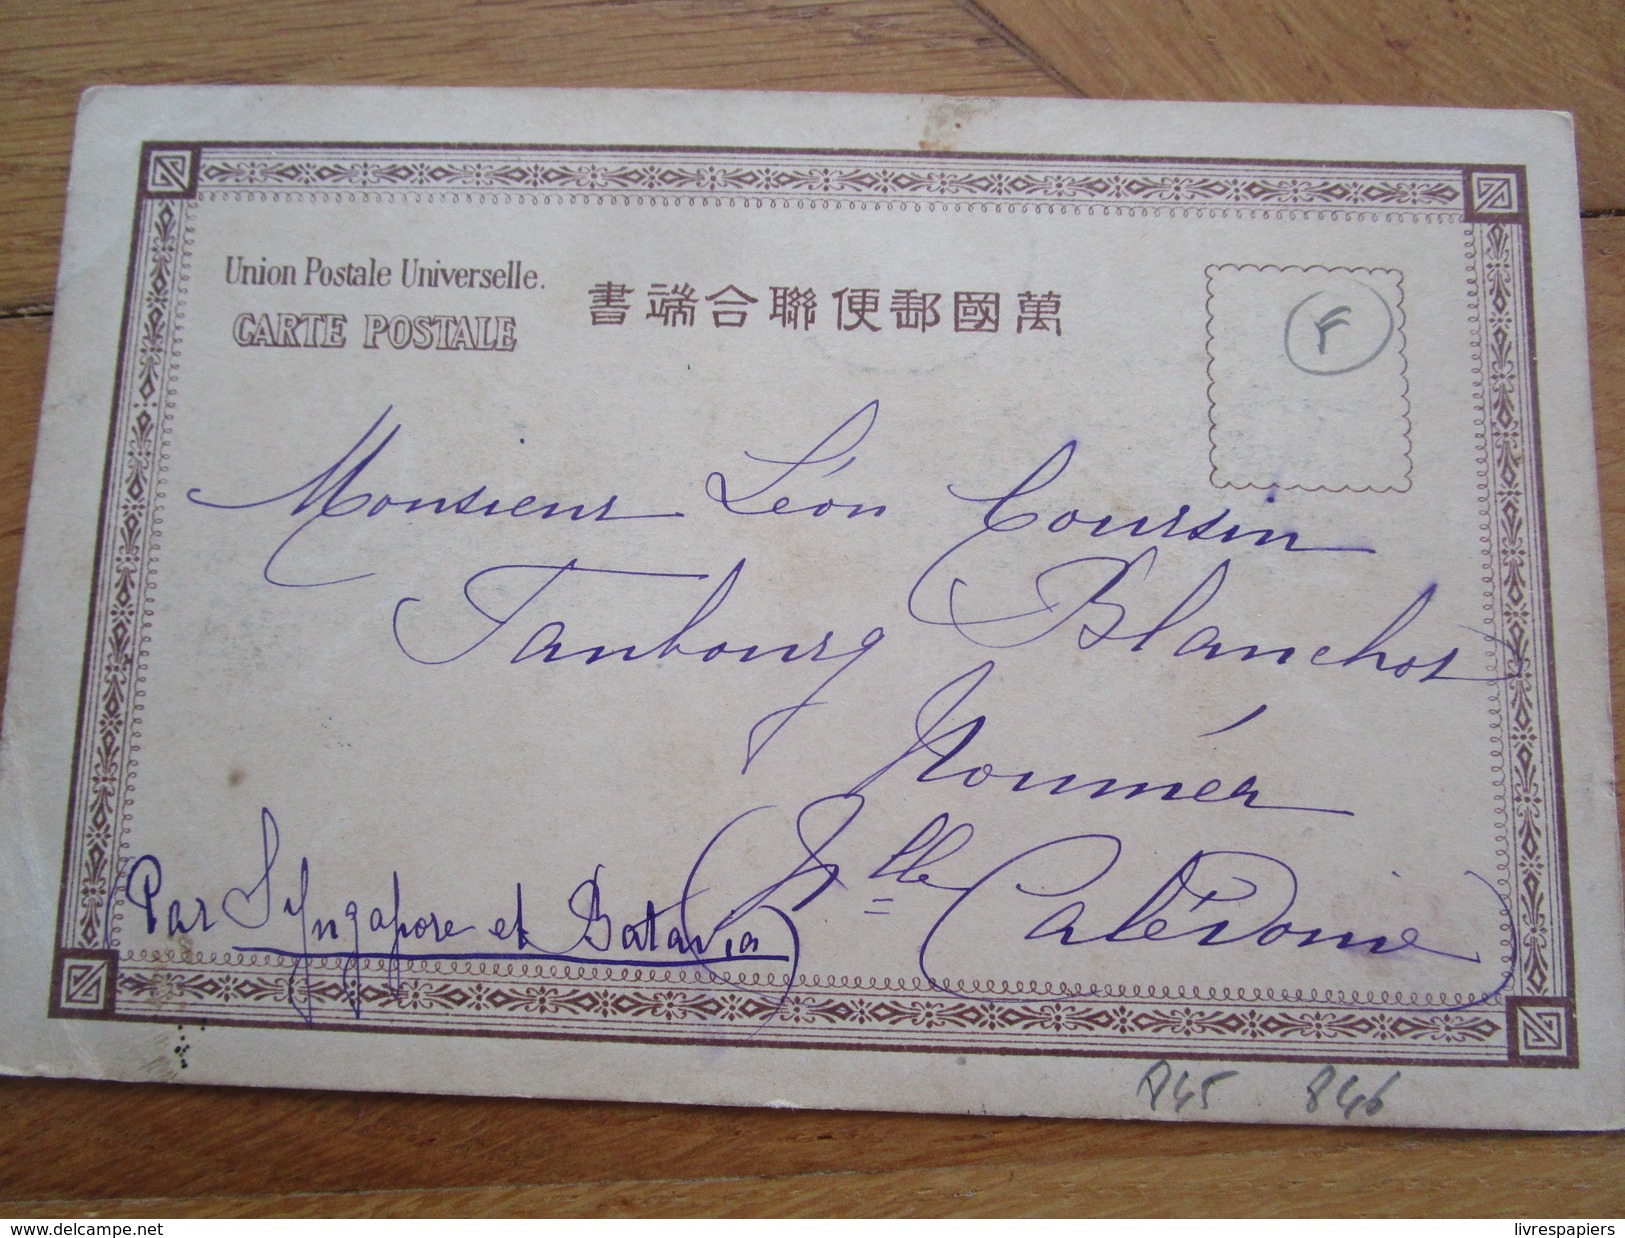 Union Postale Universelle.
CARTE POSTALE
書端合聯便郵國萬
F
Monsieur Léon Coursin
Faubourg Blanchot
Nouméa
(Par Syngapore et Batavia)
(Nlle Calédonie)
845 846
www.delcampe.net
livrespapiers